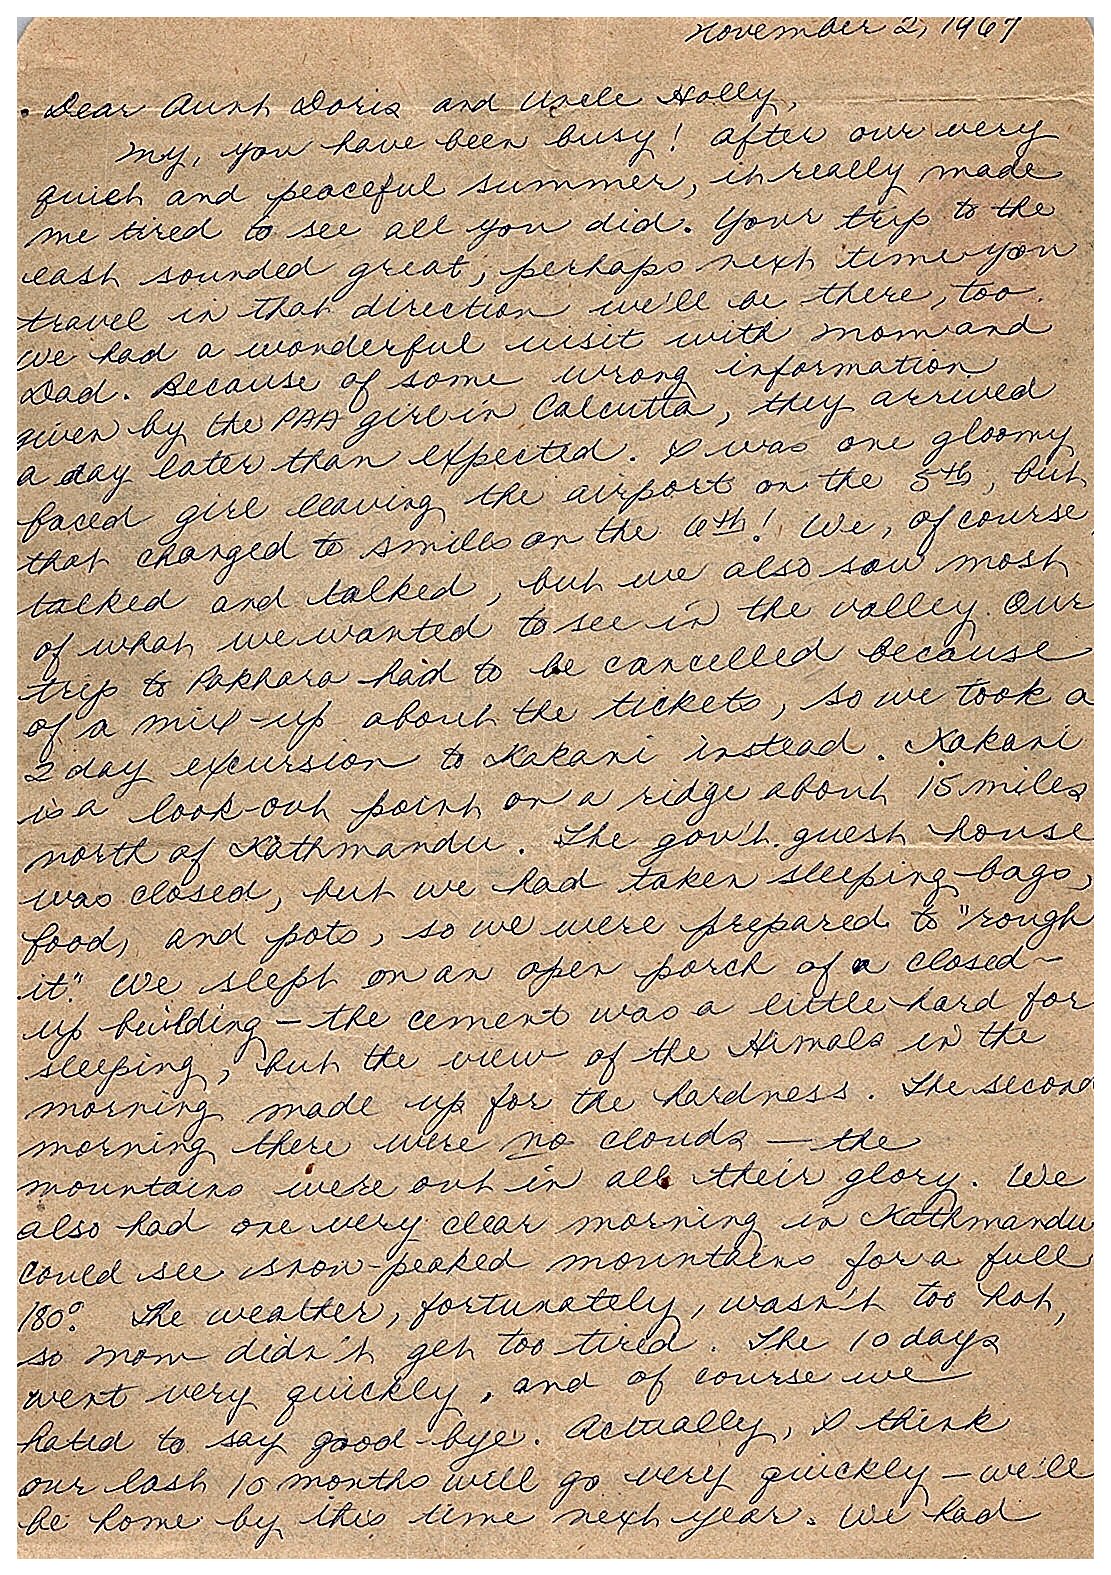 November 2, 1967
Dear Aunt Doris and Uncle Holly,
My, you have been busy! After our very
quiet and peaceful summer, it really made
me tired to see all you did. Your trip to the
east sounded great; perhaps next time you
travel in that direction we'll be there, too.
We had a wonderful visit with Mom and
Dad. Because of some wrong information
given by the PAA girl in Calcutta, they arrived
a day later than expected. I was one gloomy
faced girl leaving the airport on the 5th, but
that changed to smiles on the 6th! We, of course,
talked and talked, but we also saw most
of what we wanted to see in the valley. Our
trip to Pokhara had to be cancelled because
of a mix-up about the tickets, so we took a
2 day excursion to Kakani instead. Kakani
is a look-out point on a ridge about 15 miles
north of Kathmandu. The gov't. guest house
was closed, but we had taken sleeping bags,
food, and pots, so we were prepared to "rough
it." We slept on an open porch of a closed-
up building – the cement was a little hard for
sleeping, but the view of the Himals in the
morning made up for the hardness. The second
morning there were no clouds – the
mountains were out in all their glory. We
also had one very clear morning in Kathmandu
could see snow-peaked mountains for a full
180°. The weather, fortunately, wasn't too hot,
so Mom didn't get too tired. The 10 days
went very quickly, and of course we
hated to say good-bye. Actually, I think
our last 10 months will go very quickly – we'll
be home by this time next year. We had